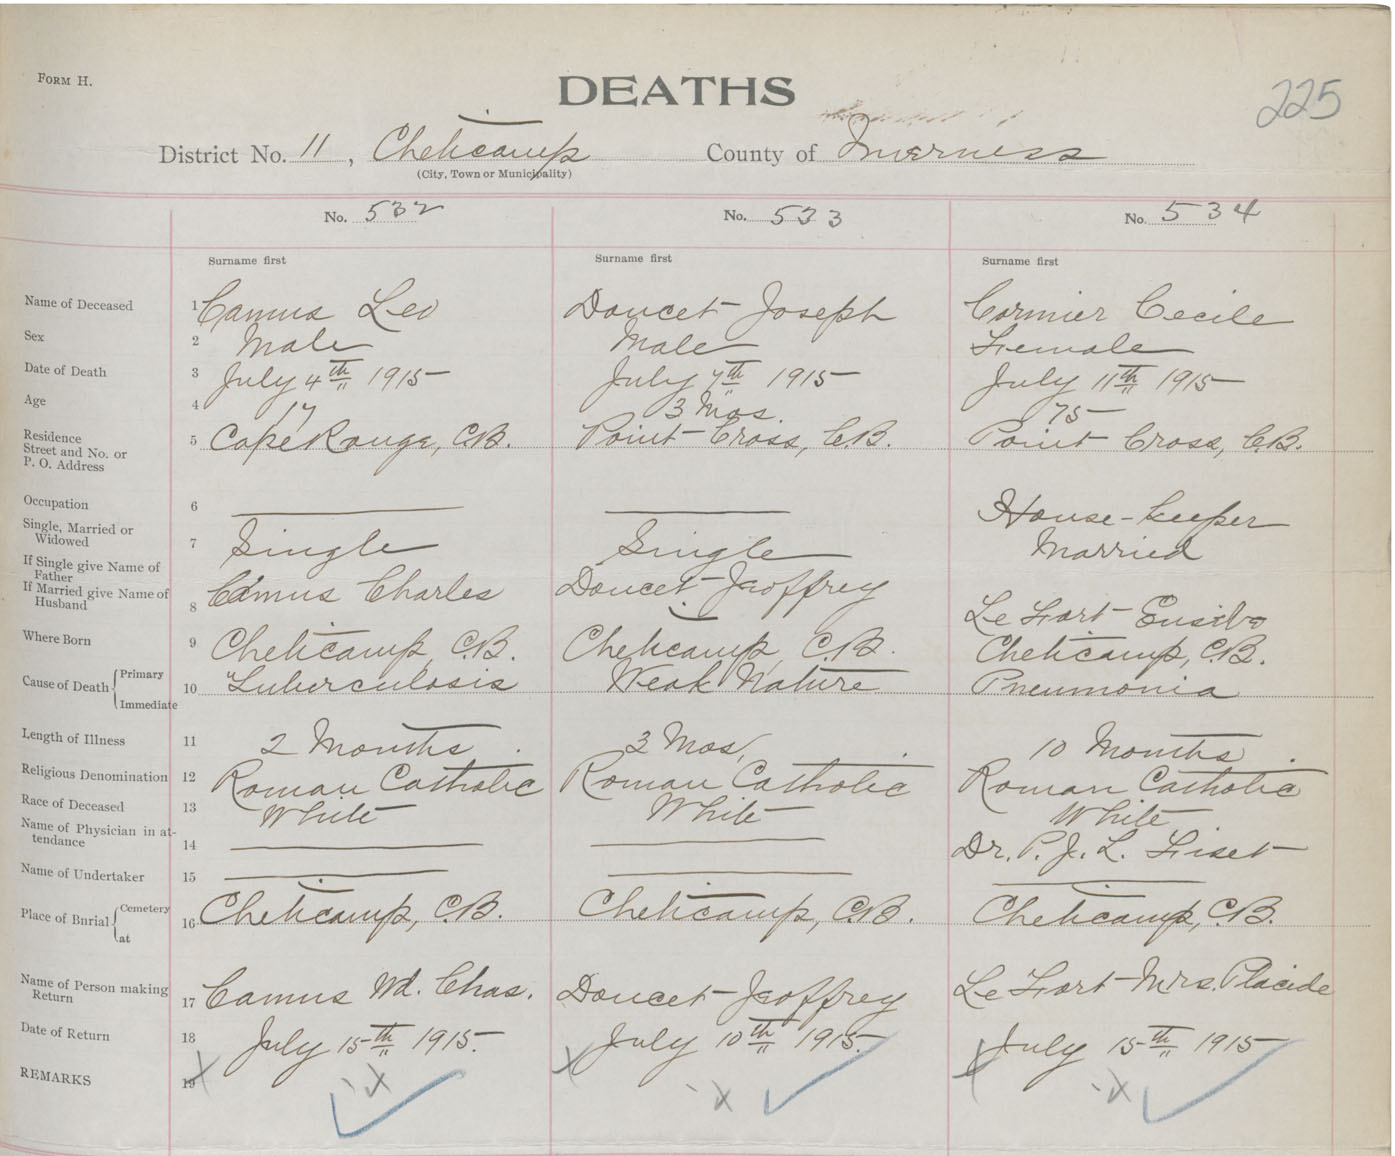 FORM H.
DEATHS
225
District No. 11, Cheticamp County of Inverness
(City, Town or Municipality)
No. 532 No. 533 No. 534
Surname first Surname first Surname first
Name of Deceased 1 Camus Leo Doucet Joseph Cormier Cecile
Sex 2 Male Male Female
Date of Death 3 July 4th 1915 July 7th 1915 July 11th 1915
Age 4 17 3 Mos. 75
Residence Street and No. or P. O. Address 5 Cape Rouge, C.B. Point Cross, C.B. Point Cross, C.B.
Occupation 6 House-keeper
Single, Married or Widowed 7 Single Single Married
If Single give Name of Father
If Married give Name of Husband 8 Camus Charles Doucet Jeoffrey Le Fort Eusibe
Where Born 9 Cheticamp, C.B. Cheticamp, C.B. Cheticamp, C.B.
Cause of Death { Primary Immediate 10 Tuberculosis Weak Nature Pneumonia
Length of Illness 11 2 Months 3 Mos, 10 Months
Religious Denomination 12 Roman Catholic Roman Catholic Roman Catholic
Race of Deceased 13 White White White
Name of Physician in attendance 14 Dr. P. J. L. Fiset
Name of Undertaker 15
Place of Burial { Cemetery at 16 Cheticamp, C.B. Cheticamp, C.B. Cheticamp, C.B.
Name of Person making Return 17 Camus Wd. Chas. Doucet Jeoffrey Le Fort Mrs. Placide
Date of Return 18 July 15th 1915. July 10th 1915. July 15th 1915
REMARKS 19